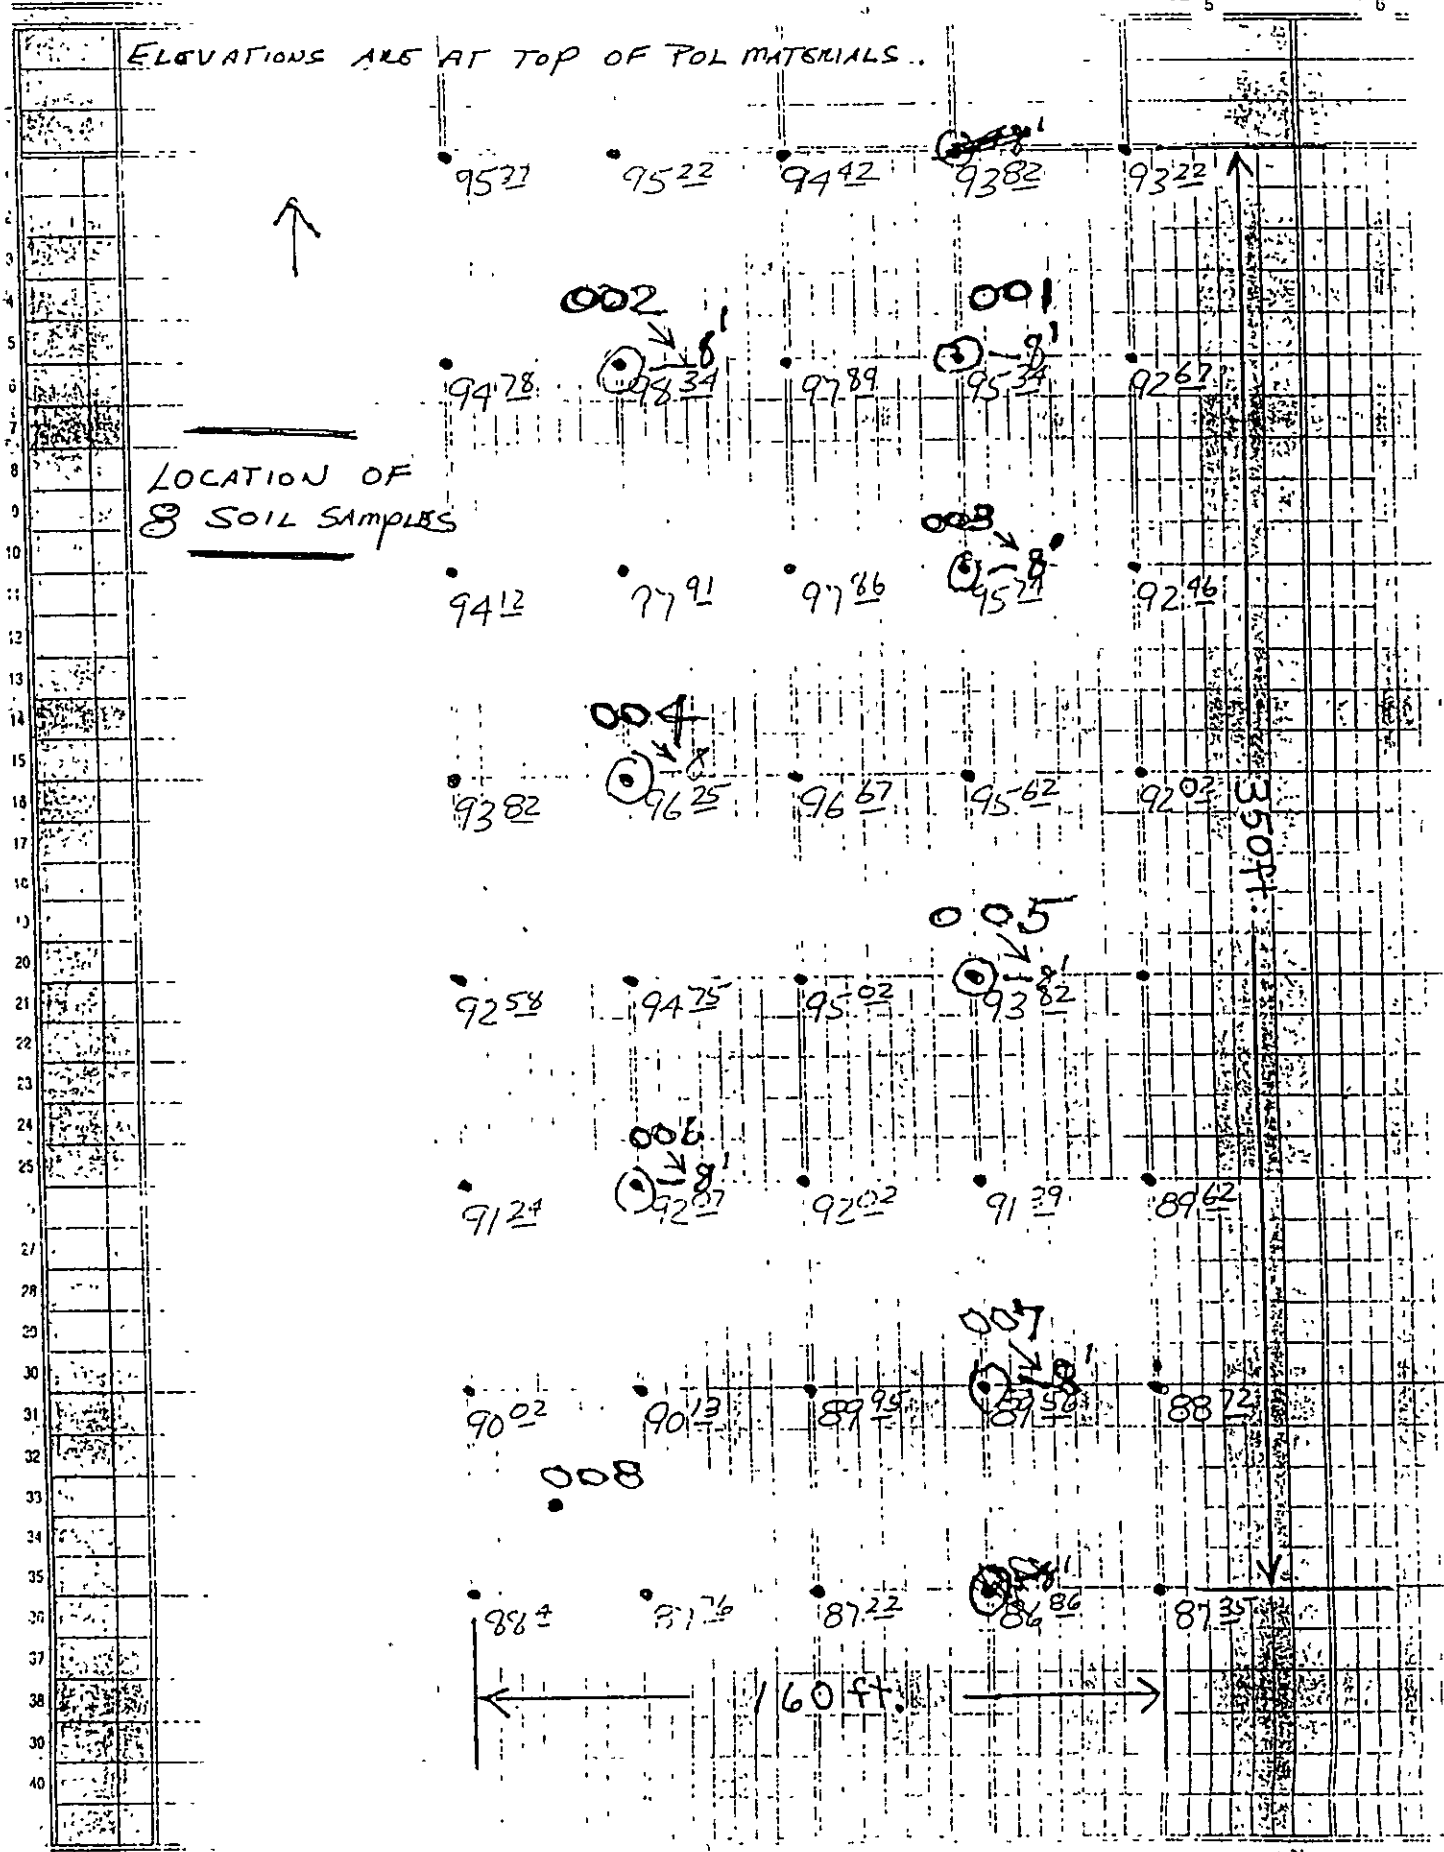 5 6
ELEVATIONS ARE AT TOP OF POL MATERIALS.
8'
95 22 94 42 93 82 93 22
002 001
8' 8'
94 78 98 34 97 89 95 34 92 67
LOCATION OF
8 SOIL SAMPLES
003
8'
94 12 97 86 92 46
004
8
93 82 96 25 96 67 95 62 92 02
350ft.
005
8'
92 58 94 75 95 02 93 82
006
8'
91 24 92 07 92 02 91 39 89 62
007
8'
90 02 90 13 89 95 89 58 88 72
008
8'
88 4 87 76 87 22 86 86 87 35
160 ft.
5
8
10
12
13
14
15
17
20
21
22
23
24
25
28
30
31
32
33
34
35
36
37
38
40